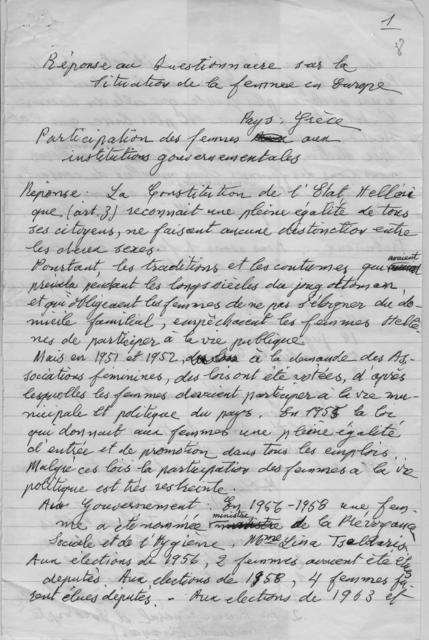 1
8
Réponse au Questionnaire sur la
situation de la femme en Europe
Pays: Grèce
Participation des femmes aux
institutions gouvernementales
Réponse: La Constitution de l'Etat Helléni
que, (art. 3) reconnait une pleine égalité de tous
ses citoyens, ne faisant aucune distinction entre
les deux sexes.
Pourtant, les traditions et les coutumes qui avaient
prévalu pendant les longs siècles du joug ottoman,
et qui obligeaient les femmes de ne pas s'éloigner du do-
micile familial, empêchaient les femmes Hellè-
nes de participer à la vie publique.
Mais en 1951 et 1952, à la demande des As-
sociations féminines, des lois ont été votées, d'après
lesquelles les femmes devraient participer à la vie mu-
nicipale et politique du pays. En 1955 la loi
qui donnait aux femmes une pleine égalité
d'entrée et de promotion dans tous les emplois.
Malgré ces lois la participation des femmes à la vie
politique est très restreinte.
Au Gouvernement: En 1956-1958 une fem-
me a été nommée ministre de la Prévoyance
Sociale et de l'Hygiène. Mme Lina Tsaldaris
Aux élections de 1956, 2 femmes avaient été élues
députés. Aux elections de 1958, 4 femmes fu-
rent élues députés. - Aux elections de 1963 et